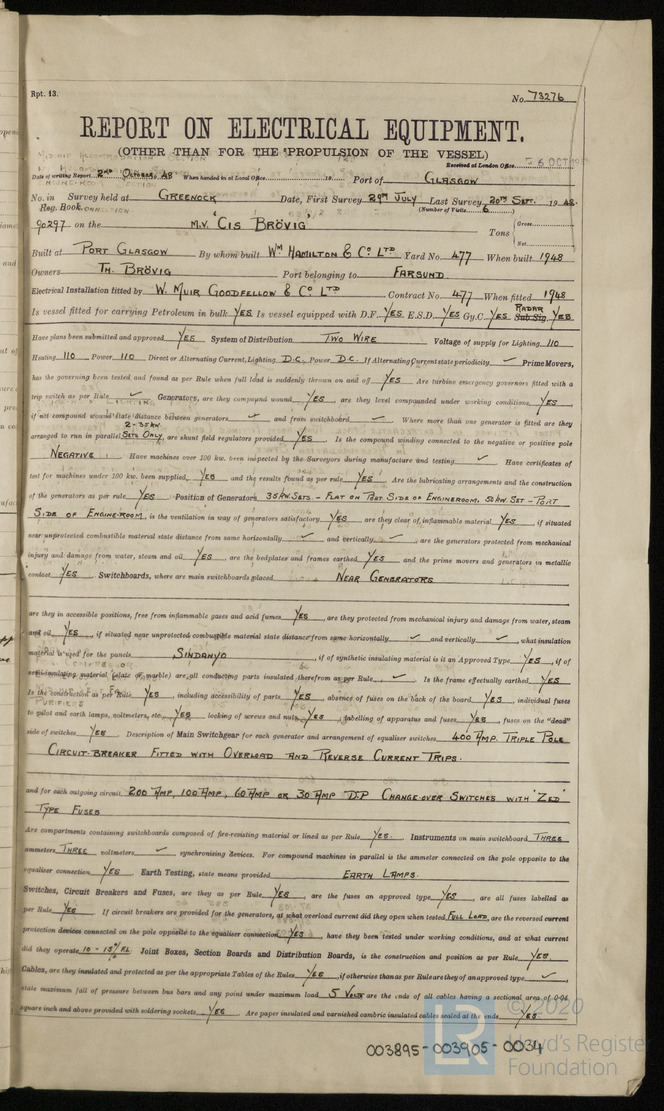 Rpt. 13.
No. 73276
REPORT ON ELECTRICAL EQUIPMENT.
(OTHER THAN FOR THE PROPULSION OF THE VESSEL)
Received at London Office 26 OCT
Date of writing Report 2nd October 48 When handed in at Local Office 19 Port of GLASGOW
No. in Survey held at GREENOCK Date, First Survey 29th JULY Last Survey 20th SEPT. 1948
Reg. Book. (Number of Visits 6)
90297 on the M.V. 'CIS BRÖVIG' Tons { Gross Net
Built at PORT GLASGOW By whom built WM HAMILTON & Co LTD Yard No. 477 When built 1948
Owners TH. BRÖVIG Port belonging to FARSUND
Electrical Installation fitted by W. MUIR GOODFELLOW & Co LTD Contract No. 477 When fitted 1948
Is vessel fitted for carrying Petroleum in bulk YES Is vessel equipped with D.F. YES E.S.D. YES Gy.C YES RADAR Sub Sig YES
Have plans been submitted and approved YES System of Distribution TWO WIRE Voltage of supply for Lighting 110
Heating 110 Power 110 Direct or Alternating Current, Lighting D.C. Power D.C. If Alternating Current state periodicity ✓ Prime Movers,
has the governing been tested and found as per Rule when full load is suddenly thrown on and off YES Are turbine emergency governors fitted with a
trip switch as per Rule ✓ Generators, are they compound wound YES, are they level compounded under working conditions YES
if not compound wound state distance between generators ✓ and from switchboard ✓ Where more than one generator is fitted are they
arranged to run in parallel 2-35KW SETS ONLY, are shunt field regulators provided YES Is the compound winding connected to the negative or positive pole
NEGATIVE Have machines over 100 kw. been inspected by the Surveyors during manufacture and testing ✓ Have certificates of
test for machines under 100 kw. been supplied, YES and the results found as per rule YES Are the lubricating arrangements and the construction
of the generators as per rule YES Position of Generators 35KW. SETS - FLAT ON PORT SIDE OF ENGINEROOM, 50KW. SET - PORT
SIDE OF ENGINE-ROOM, is the ventilation in way of generators satisfactory YES are they clear of inflammable material YES, if situated
near unprotected combustible material state distance from same horizontally ✓ and vertically ✓, are the generators protected from mechanical
injury and damage from water, steam and oil YES, are the bedplates and frames earthed YES and the prime movers and generators in metallic
contact YES Switchboards, where are main switchboards placed NEAR GENERATORS
are they in accessible positions, free from inflammable gases and acid fumes YES, are they protected from mechanical injury and damage from water, steam
and oil YES, if situated near unprotected combustible material state distance from same horizontally ✓ and vertically ✓, what insulation
material is used for the panels SINDANYO, if of synthetic insulating material is it an Approved Type YES, if of
semi-insulating material (slate or marble) are all conducting parts insulated therefrom as per Rule ✓ Is the frame effectually earthed YES
Is the construction as per Rule YES, including accessibility of parts YES, absence of fuses on the back of the board YES, individual fuses
to pilot and earth lamps, voltmeters, etc. YES locking of screws and nuts YES, labelling of apparatus and fuses YES, fuses on the "dead"
side of switches YES Description of Main Switchgear for each generator and arrangement of equaliser switches 400 AMP. TRIPLE POLE
CIRCUIT-BREAKER FITTED WITH OVERLOAD AND REVERSE CURRENT TRIPS.
and for each outgoing circuit 200 AMP, 100 AMP, 60 AMP OR 30 AMP D.P CHANGE-OVER SWITCHES WITH 'ZED'
TYPE FUSES
Are compartments containing switchboards composed of fire-resisting material or lined as per Rule YES. Instruments on main switchboard THREE
ammeters THREE voltmeters ✓ synchronising devices. For compound machines in parallel is the ammeter connected on the pole opposite to the
equaliser connection YES Earth Testing, state means provided EARTH LAMPS.
Switches, Circuit Breakers and Fuses, are they as per Rule YES, are the fuses an approved type YES, are all fuses labelled as
per Rule YES If circuit breakers are provided for the generators, at what overload current did they open when tested FULL LOAD, are the reversed current
protection devices connected on the pole opposite to the equaliser connection YES, have they been tested under working conditions, and at what current
did they operate 10 - 15% F.L. Joint Boxes, Section Boards and Distribution Boards, is the construction and position as per Rule YES
Cables, are they insulated and protected as per the appropriate Tables of the Rules YES, if otherwise than as per Rule are they of an approved type ✓
state maximum fall of pressure between bus bars and any point under maximum load 5 VOLTS are the ends of all cables having a sectional area of 0·04
square inch and above provided with soldering sockets YES Are paper insulated and varnished cambric insulated cables sealed at the ends YES
© 2020
LR Lloyd's Register
Foundation
003895-003905-0034